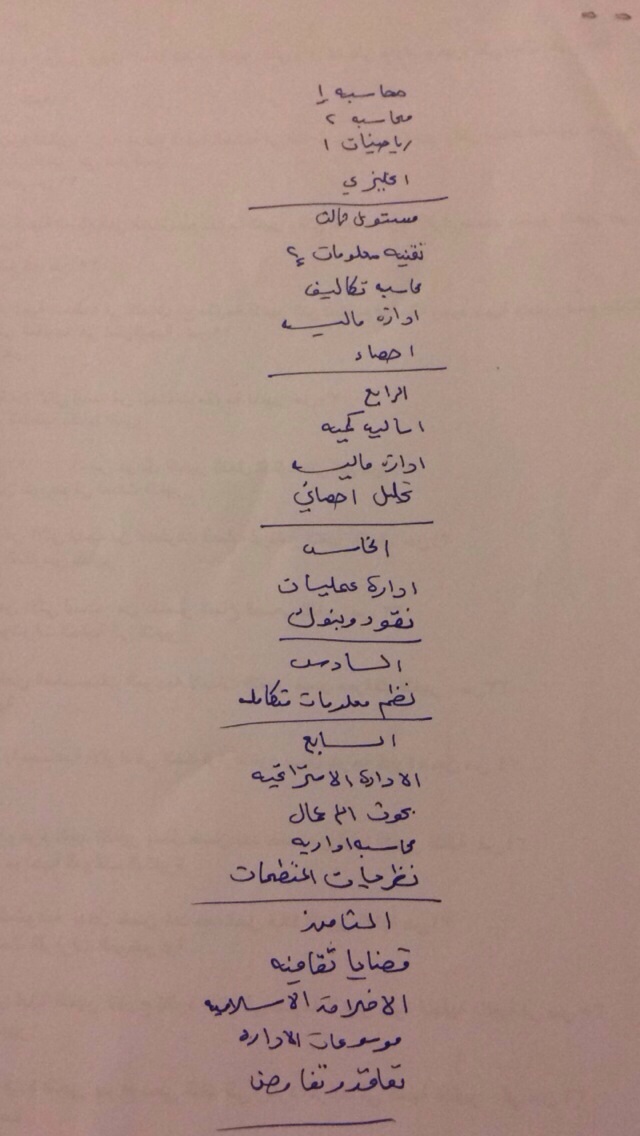 محاسبه ١
محاسبه ٢
رياضيات ١
انجليزي
مستوى ثالث
تقنيه معلومات ٢
محاسبه تكاليف
ادارة ماليه
احصاء
الرابع
اساليب كميه
ادارة ماليه
تحليل احصائي
الخامس
ادارة عمليات
نقود وبنوك
السادس
نظم معلومات متكامله
السابع
الادارة الاستراتجيه
بحوث الاعمال
محاسبه اداريه
نظريات المنظمات
الثامن
قضايا ثقافيه
الاخلاق الاسلاميه
موسوعات الادارة
تعاقد وتفاوض